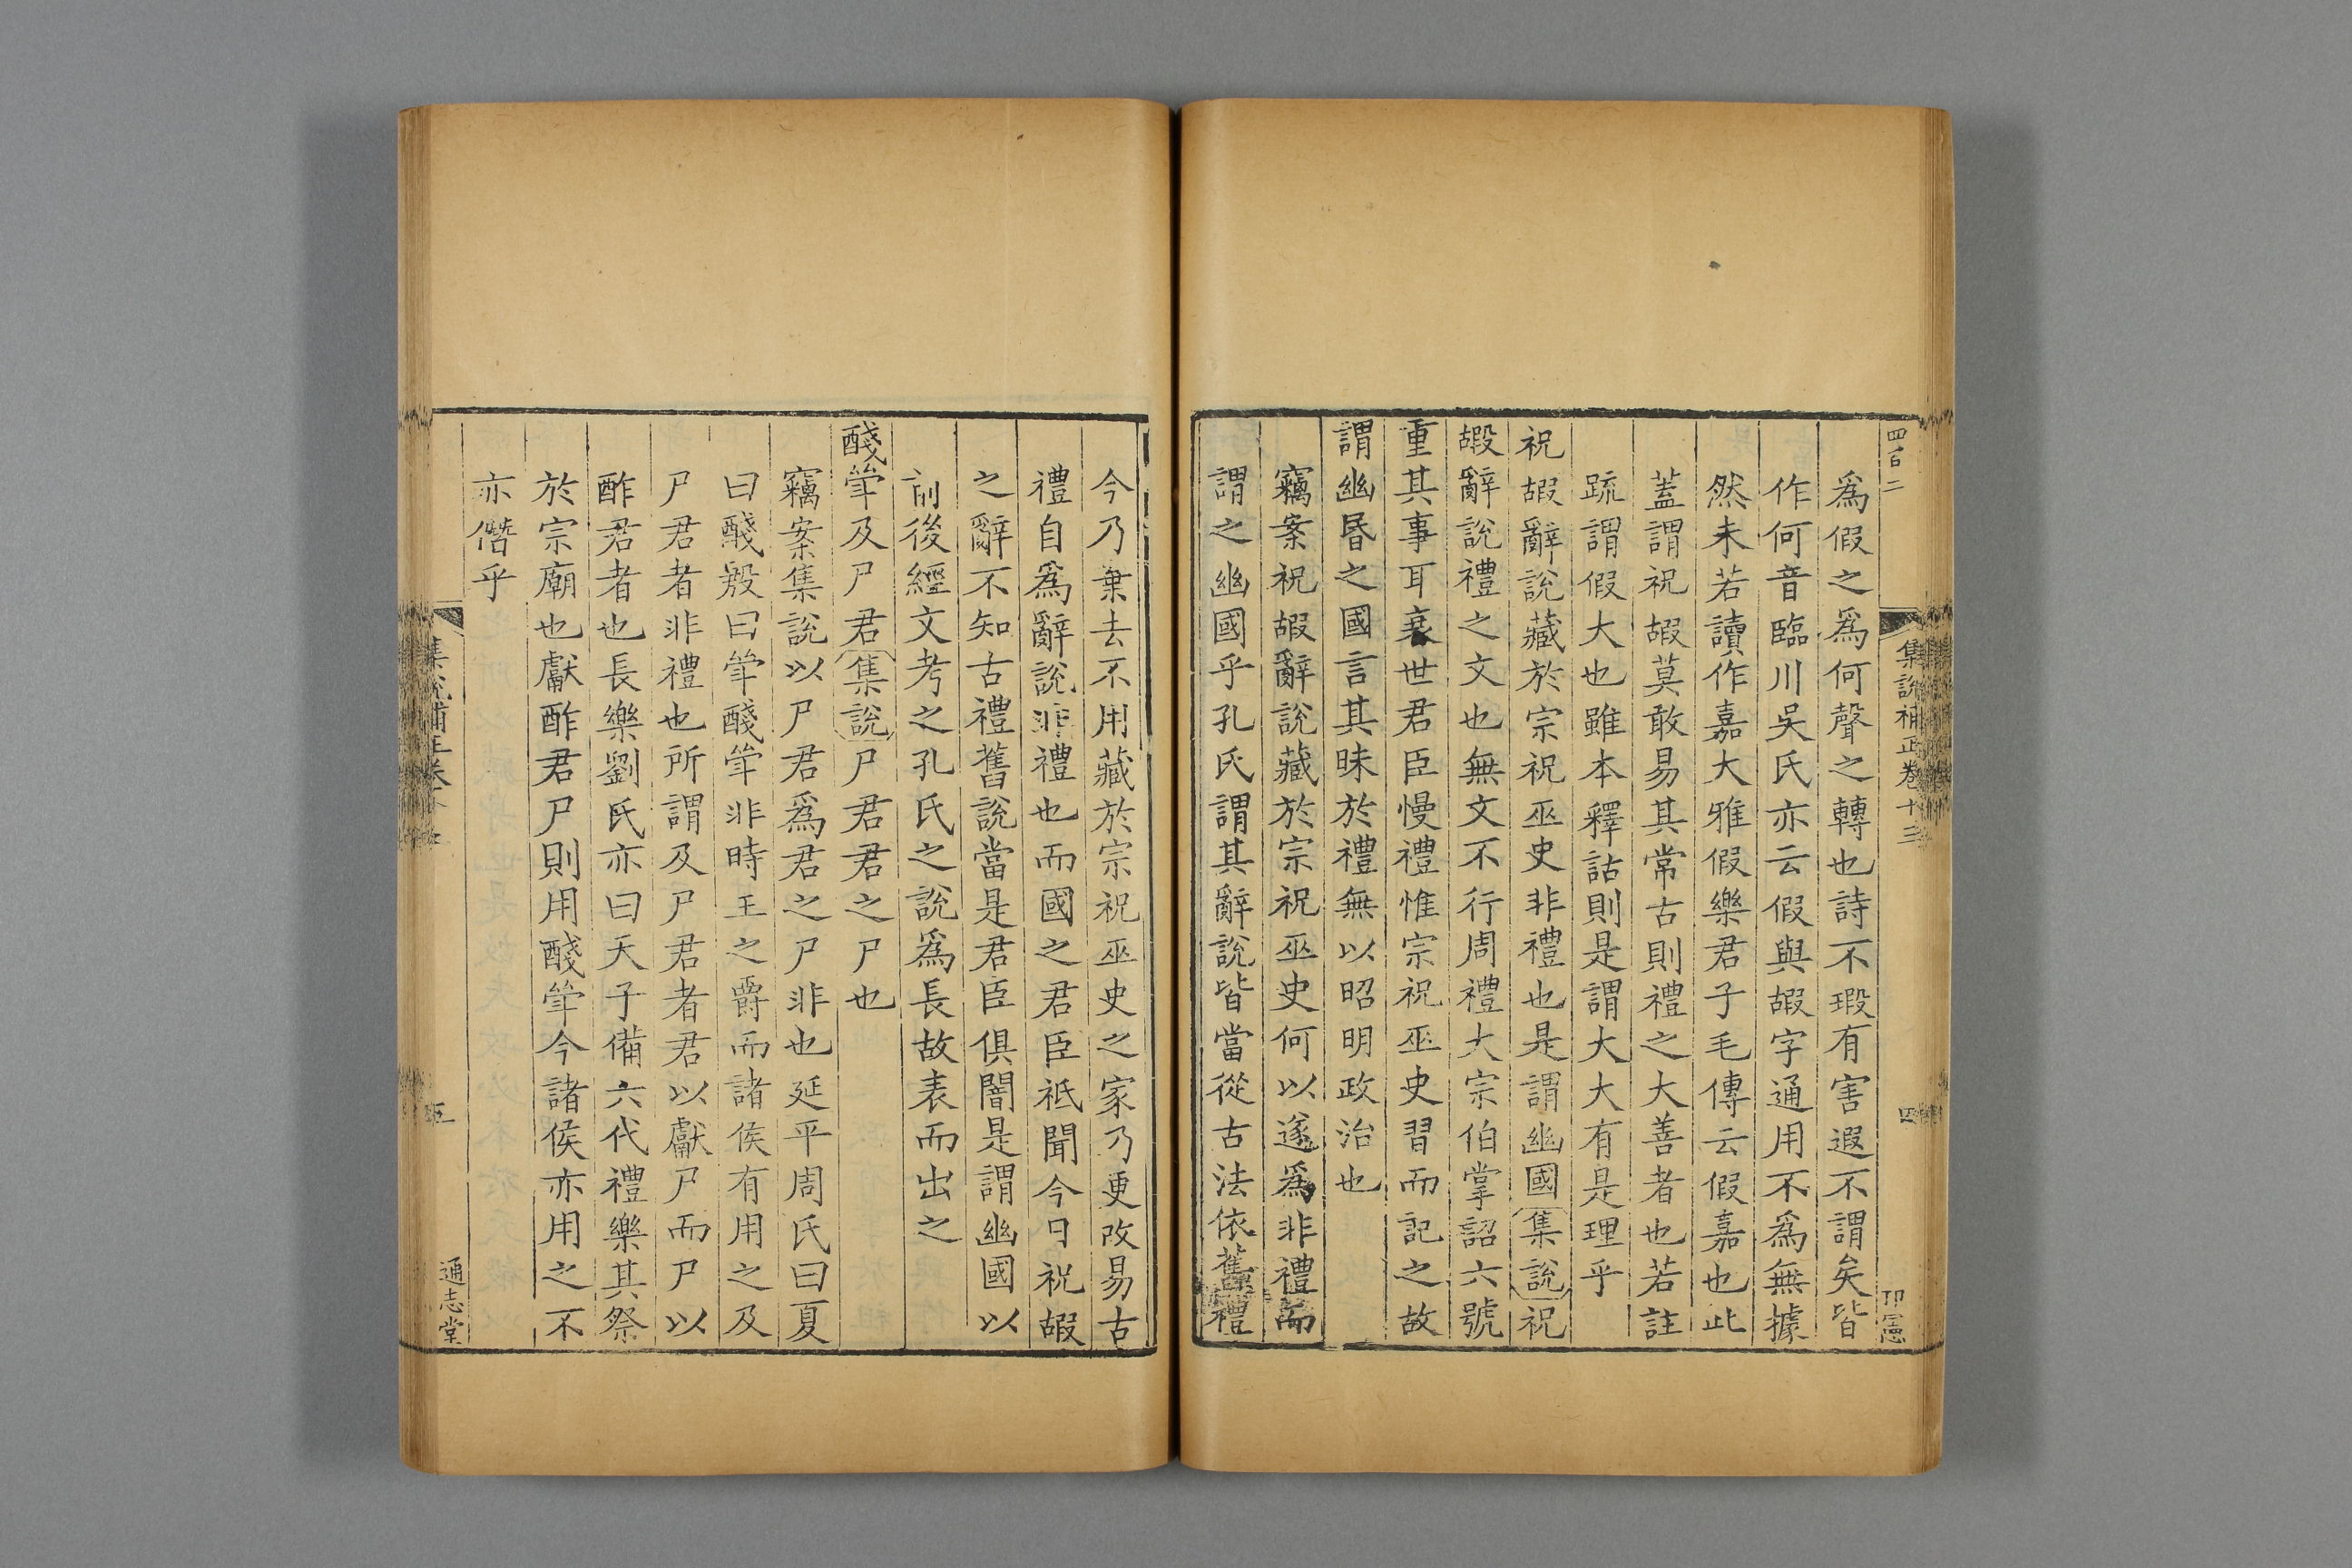 四百二
集說補正卷十三
四
爲假之爲何聲之轉也詩不瑕有害遐不謂矣皆
作何音臨川吳氏亦云假與嘏字通用不爲無據
然未若讀作嘉大雅假樂君子毛傳云假嘉也此
蓋謂祝嘏莫敢易其常古則禮之大善者也若註
疏謂假大也雖本釋詁則是謂大大有是理乎
祝嘏辭說藏於宗祝巫史非禮也是謂幽國集說祝
嘏辭說禮之文也無文不行周禮大宗伯掌詔六號
重其事耳衰世君臣慢禮惟宗祝巫史習而記之故
謂幽昬之國言其昧於禮無以昭明政治也
竊案祝嘏辭說藏於宗祝巫史何以遂爲非禮而
謂之幽國乎孔氏謂其辭說皆當從古法依舊禮
今乃棄去不用藏於宗祝巫史之家乃更改易古
禮自爲辭說非禮也而國之君臣祗聞今日祝嘏
之辭不知古禮舊說當是君臣俱闇是謂幽國以
前後經文考之孔氏之說爲長故表而出之
醆斚及尸君集說尸君君之尸也
竊案集說以尸君爲君之尸非也延平周氏曰夏
曰醆殷曰斚醆斚非時王之爵而諸侯有用之及
尸君者非禮也所謂及尸君者君以獻尸而尸以
酢君者也長樂劉氏亦曰天子備六代禮樂其祭
於宗廟也獻酢君尸則用醆斚今諸侯亦用之不
亦僭乎
五
通志堂